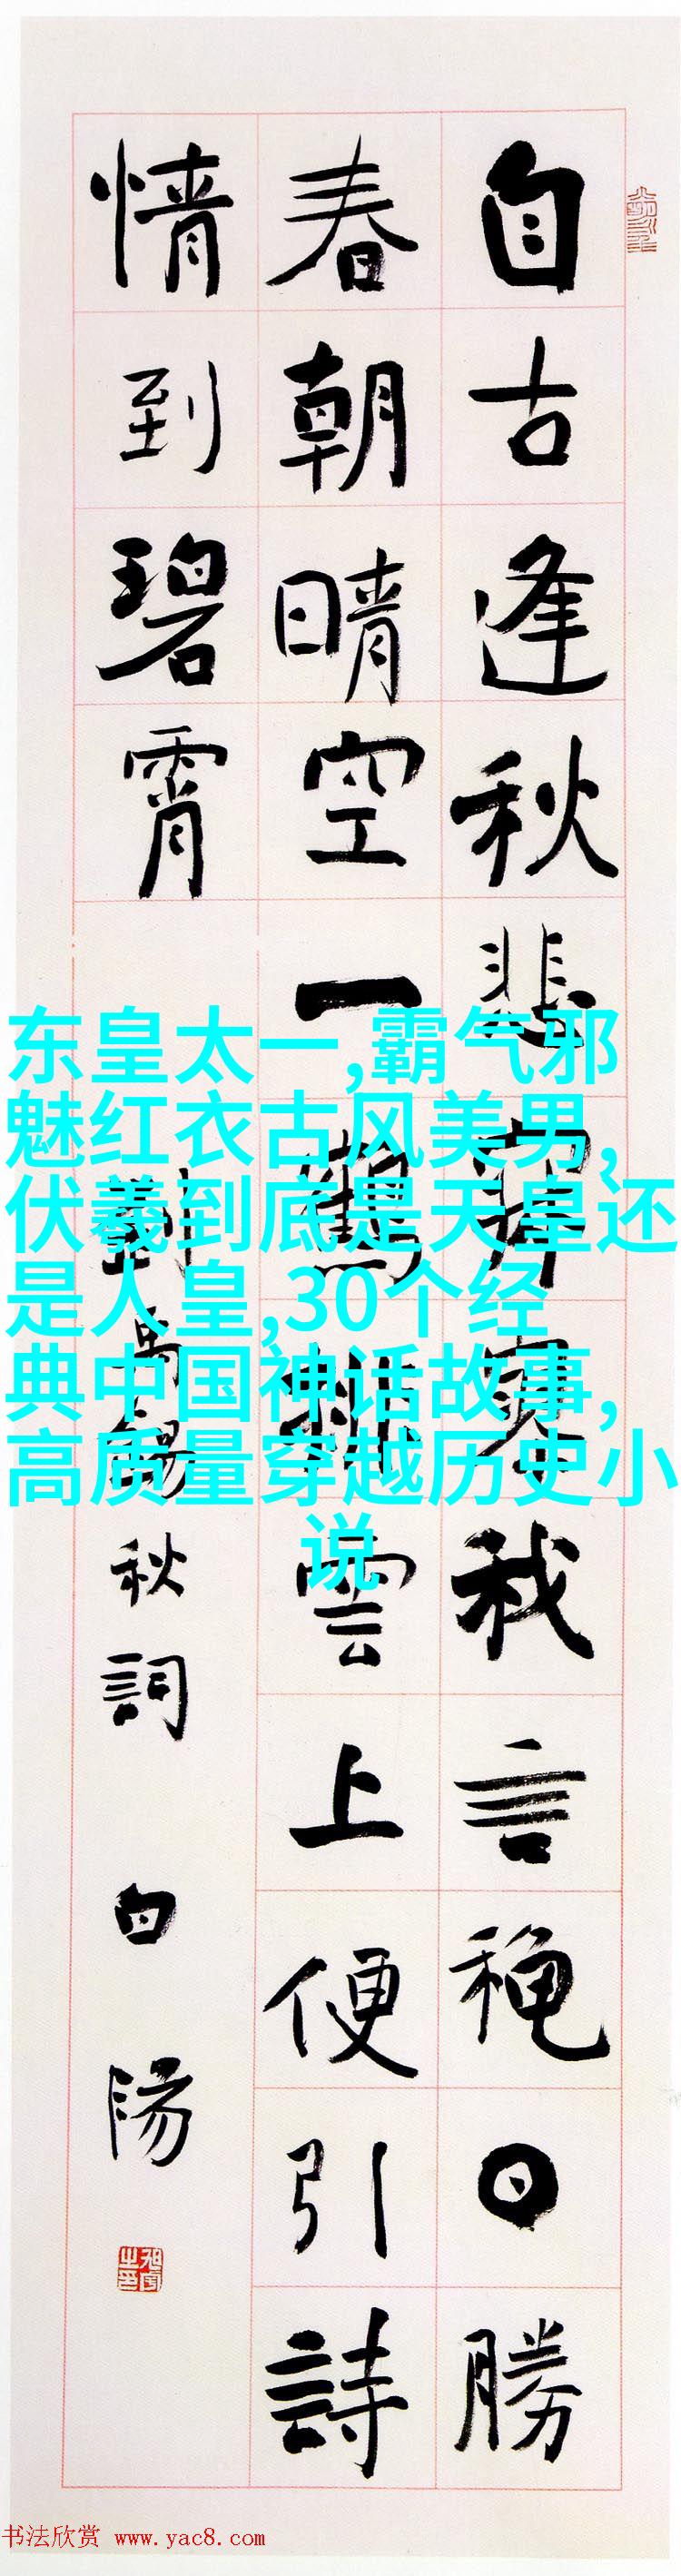 自古逢秋悲寂寥我言穐日勝
春朝晴空一鶴排雲上便引詩
情到碧霄
劉禹錫秋詞 白陽
东皇太一,霸气邪
魅红衣古风美男,
伏羲到底是天皇还
是人皇,30个经
典中国神话故事,
高质量穿越历史小
说
书法欣赏 www.yac8.com